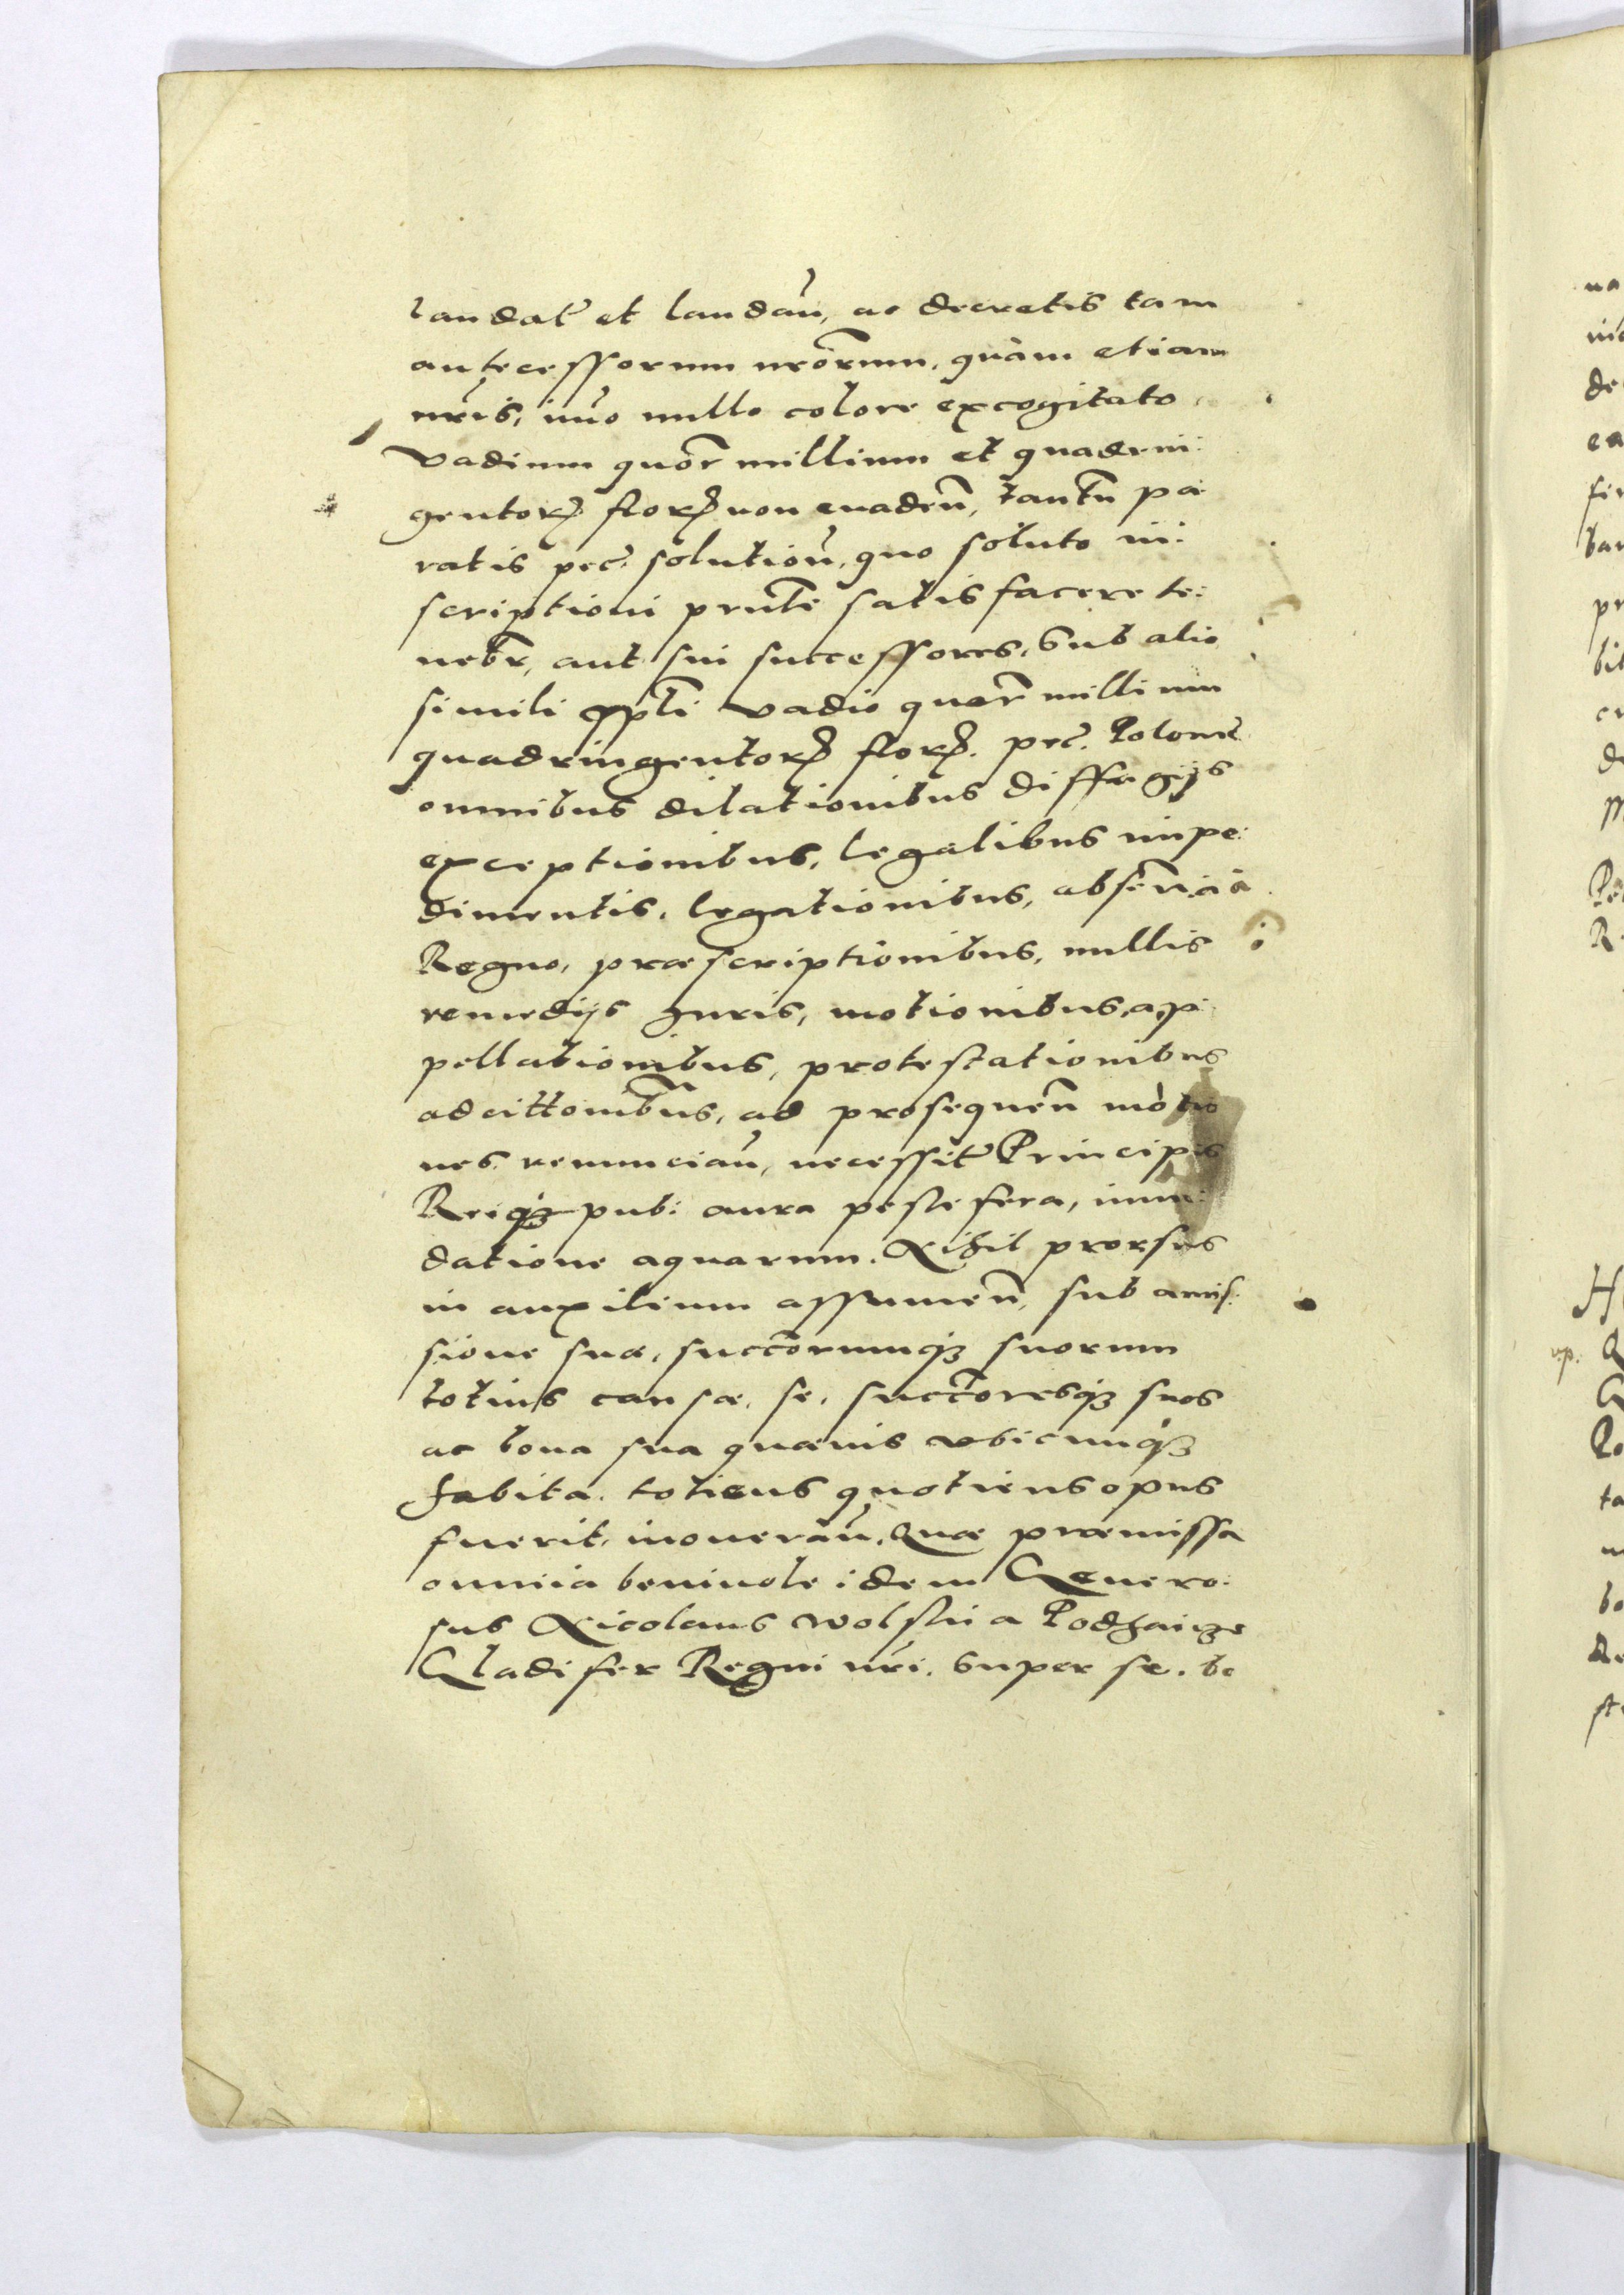 laudat et laudan, ac decretis tam
antecessorum nrorum, quàm etiam
nris, imo nullo colore excogitato
Vadium quor millium et quadrin:
gentor flor non euaden, tantum pa
ratis pec: solution, quo soluto in:
scriptioni prnte satisfacere te:
nebr, aut sui successores, Sub alio
simili vadio quor millium
quadringentor flor. pec. Polone
omnibus dilationibus diffugijs
exceptionibus, legalibus impe:
dimentis, legationibus, absencia à
Regno, præscriptionibus, nullis
remedijs Juris, motionibus, ap:
pellationibus, protestationibus
adcittonibus, ad prosequen motio
nes renuncian, necessit Principis
Reiq3 pub: aura pestefera, inun:
datione aquarum. Nihil prorsus
in auxilium assumen, sub amis:
sione suæ, succorumq3 suorum
totius causæ, se, succoresq3 suos
ac bona sua quæuis vbicunq3
habita, totiens quotiens opus
fuerit, inoueran. Quæ præmissa
omnia beniuole idem Genero:
sus Nicolaus Wolski a Podhaicze
Gladifer Regni nri. Super se, bo